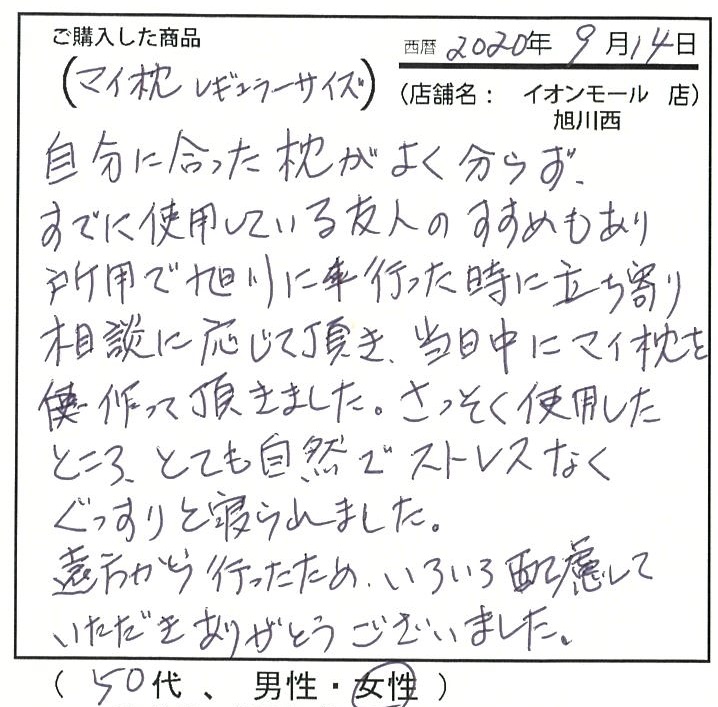 ご購入した商品
西暦 2020年 9月14日
(マイ枕 レギュラーサイズ)
(店舗名： イオンモール 店)
旭川西
自分に合った枕がよく分らず、
すでに使用している友人のすすめもあり
所用で旭川に行った時に立ち寄り
相談に応じて頂き、当日中にマイ枕を
作って頂きました。さっそく使用した
ところ、とても自然でストレスなく
ぐっすりと寝られました。
遠方から行ったため、いろいろ配慮して
いただきありがとうございました。
( 50代 、 男性・女性 )